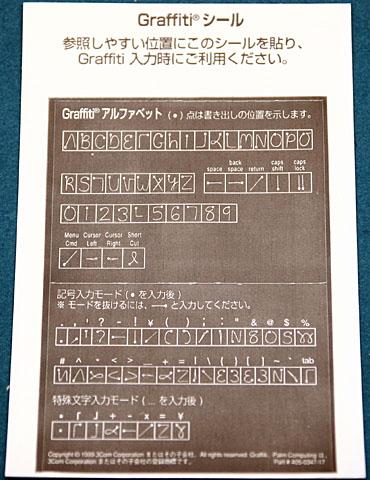 Graffiti® シール
参照しやすい位置にこのシールを貼り、
Graffiti 入力時にご利用ください。
Graffiti® アルファベット (●) 点は書き出しの位置を示します。
A B C D E F G H I J K L M N O P Q
R S T U V W X Y Z
space back space return caps shift caps lock
0 1 2 3 4 5 6 7 8 9
Menu Cmd Cursor Left Cursor Right Short Cut
記号入力モード (● を入力後)
※ モードを抜けるには、 と入力してください。
. , ' ? - ! ¥ ( ) ; : " & @ $ %
# ^ * < > _ + = | \ { } [ ] ~ ` tab
特殊文字入力モード (... を入力後)
• 「 」 + - x = ¥
Copyright © 1999 3Com Corporation またはその子会社。 All rights reserved. Graffiti、 Palm Computing は、
3Com Corporation またはその子会社の登録商標です。 Part #:405-0347-17